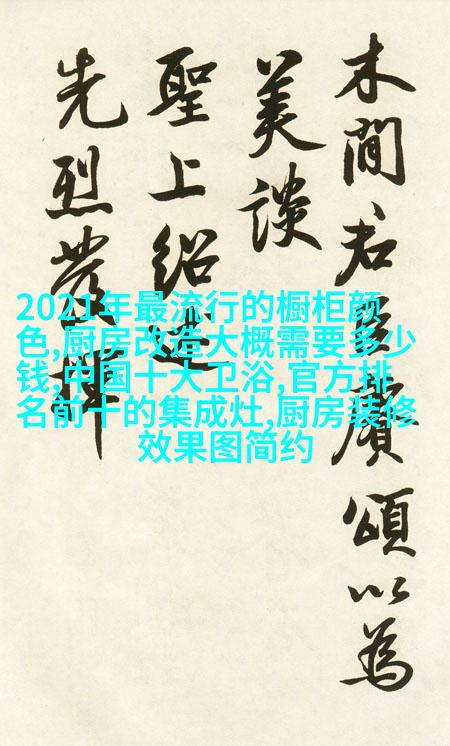 木間君臣賡頌以為
美談
聖上紹述
先烈發揮
2021年最流行的橱柜颜
色,厨房改造大概需要多少
钱,中国十大卫浴,官方排
名前十的集成灶,厨房装修
效果图简约